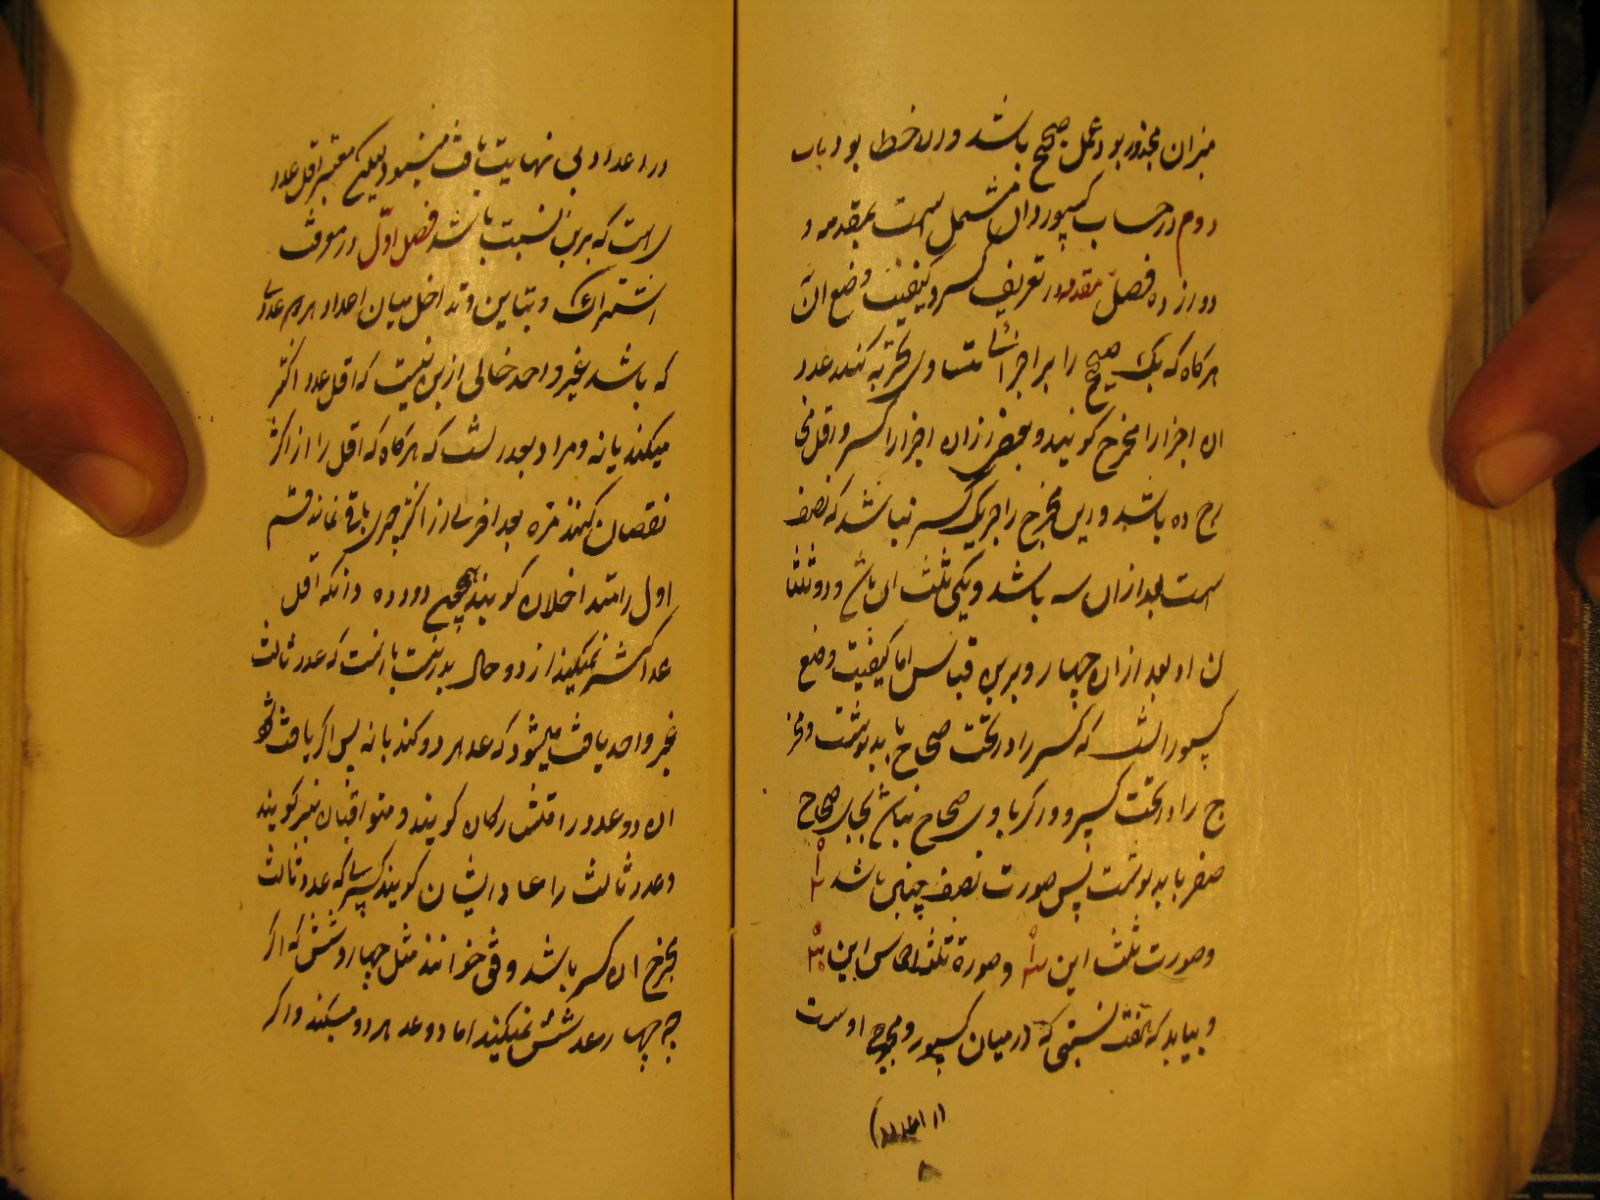 میزان مجذور بود عمل صحیح باشد و الا خطا بود باب
دوم در حساب کسور و ان مشتمل است بمقدمه و
دوازده فصل مقدمه در تعریف کسر و کیفیت وضع ان
هرکاه که یک صحیح را بر اجزائی متساوی تجزیه کنند عدد
ان اجزا را مخرج کویند و بعضی از ان اجزا را کسر و اقل مخا
رج دو باشد و این مخرج را جز یک کسر نباشد که نصف
است بعد از ان سه باشد و یکی ثلث ان باشد و دو ثلثا
ن او بعد از ان چهار و برین قیاس اما کیفیت وضع
کسور انست که کسر را در تحت صحاح باید نوشت و مخر
ج را در تحت کسر و اگر باوی صحاح نباشد بجای صحاح
صفر باید نوشت پس صورت نصف چنین باشد ۰ ۱ ۲
وصورت ثلث این ۰ ۱ ۳ وصورة ثلثه اخماس این
و بباید که نسبتی که درمیان کسور و مخرج اوست
در اعداد بی نهایت یافت میشود لیکن معتبر اقل عدد
است که برین نسبت باشد فصل اول در معرفت
اشتراک و تباین و تداخل میان اعداد هر دو عددی
که باشد غیر واحد خالی ازین نیست که اقل عد اکثر
میکند یا نه و مراد بعد انست که هرکاه که اقل را از اکثر
نقصان کنند مرة بعد اخری از اکثر چیزی باقی نماند قسم
اول را متداخلان کویند همچو دو و ده و انکه اقل
عد اکثر نمیکند از دو حال بدر نیست یا انست که عدد ثالث
غیر واحد یافت میشود که عد هر دو کند یا نه پس اکر یافت شود
ان دو عدد را متشارکان کویند و متوافقان نیز کویند
و عدد ثالث را عاد ایشان کویند کسری که عدد ثالث
مخرج ان کسر باشد وفق خوانند مثل چهار و شش که اکر
چه چهار عد شش نمیکند اما دو عد هر دو میکند و اکر